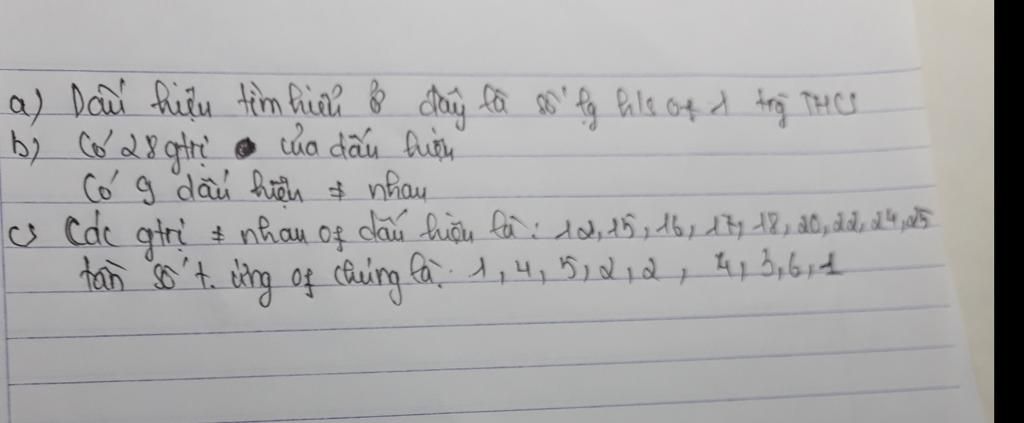 a) Dấu hiệu tìm hiểu ở đây là số lg h/s of 1 trg THCS
b) Có 28 gtrị của dấu hiệu
Có 9 dấu hiệu ≠ nhau
c) Các gtrị ≠ nhau of dấu hiệu là: 12, 15, 16, 17, 18, 20, 22, 24, 25
tần số t. ứng of chúng là: 1, 4, 5, 2, 2, 4, 3, 6, 1